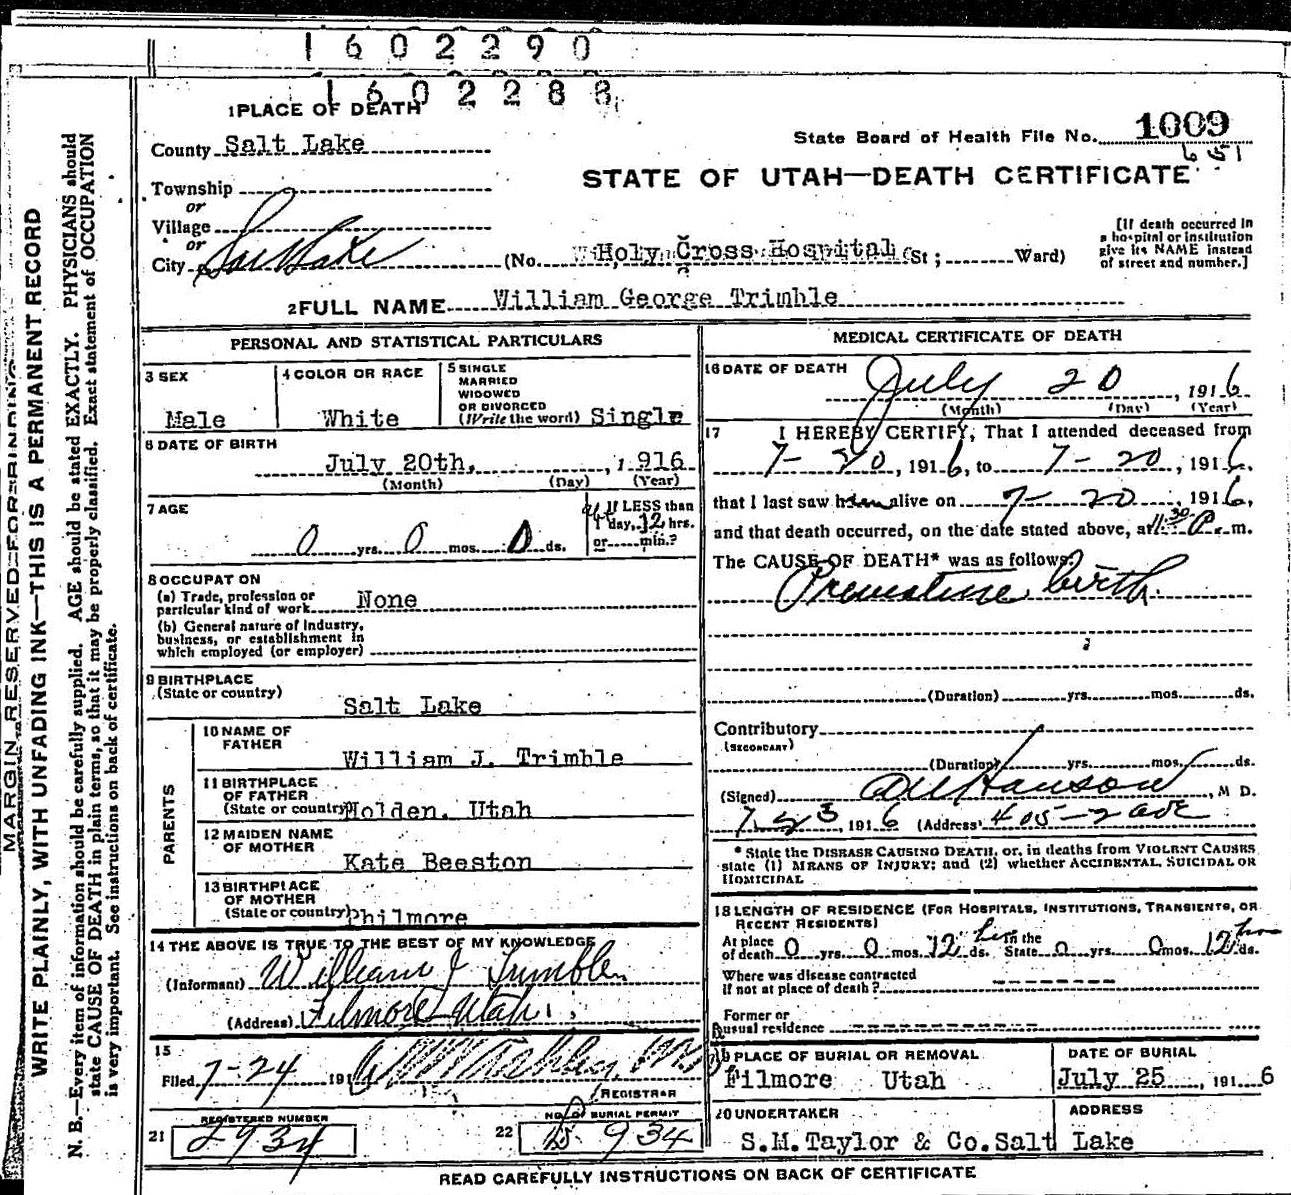 1602290
1602288
1 PLACE OF DEATH
State Board of Health File No. 1009
651
County Salt Lake
STATE OF UTAH—DEATH CERTIFICATE
Township
or
Village
or
City Salt Lake (No. Holy Cross Hospital St; Ward)
[If death occurred in
a hospital or institution
give its NAME instead
of street and number.]
2 FULL NAME William George Trimble
PERSONAL AND STATISTICAL PARTICULARS
3 SEX
Male
4 COLOR OR RACE
White
5 SINGLE
MARRIED
WIDOWED
OR DIVORCED
(Write the word) Single
6 DATE OF BIRTH
July 20th, 1916
(Month) (Day) (Year)
7 AGE
0 yrs. 0 mos. 0 ds.
If LESS than
1 day, 12 hrs.
or min.?
8 OCCUPATION
(a) Trade, profession or
particular kind of work None
(b) General nature of industry,
business, or establishment in
which employed (or employer)
9 BIRTHPLACE
(State or country)
Salt Lake
PARENTS
10 NAME OF
FATHER
William J. Trimble
11 BIRTHPLACE
OF FATHER
(State or country) Holden. Utah
12 MAIDEN NAME
OF MOTHER
Kate Beeston
13 BIRTHPLACE
OF MOTHER
(State or country) Philmore
14 THE ABOVE IS TRUE TO THE BEST OF MY KNOWLEDGE
(Informant) William J Trimble
(Address) Filmore Utah
15
Filed 7-24 191
REGISTRAR
REGISTERED NUMBER
21 2934
NO. OF BURIAL PERMIT
22 934
MEDICAL CERTIFICATE OF DEATH
16 DATE OF DEATH
July 20, 1916
(Month) (Day) (Year)
17 I HEREBY CERTIFY, That I attended deceased from
7-20, 1916, to 7-20, 1916,
that I last saw him alive on 7-20, 1916,
and that death occurred, on the date stated above, at 11:30 P. m.
The CAUSE OF DEATH* was as follows:
Premature birth.
(Duration) yrs. mos. ds.
Contributory
(SECONDARY)
(Duration) yrs. mos. ds.
(Signed) Hanson, M D.
7-23 1916 (Address) 405-2 ave
* State the DISEASE CAUSING DEATH, or, in deaths from VIOLENT CAUSES
state (1) MEANS OF INJURY; and (2) whether ACCIDENTAL, SUICIDAL OR
HOMICIDAL
18 LENGTH OF RESIDENCE (FOR HOSPITALS, INSTITUTIONS, TRANSIENTS, OR
RECENT RESIDENTS)
At place of death 0 yrs. 0 mos. 12 hrs ds. In the State 0 yrs. 0 mos. 12 hrs ds.
Where was disease contracted
if not at place of death?
Former or
usual residence
19 PLACE OF BURIAL OR REMOVAL
Filmore Utah
DATE OF BURIAL
July 25, 1916
20 UNDERTAKER
ADDRESS
S.M. Taylor & Co. Salt Lake
READ CAREFULLY INSTRUCTIONS ON BACK OF CERTIFICATE
MARGIN RESERVED FOR BINDING
WRITE PLAINLY, WITH UNFADING INK—THIS IS A PERMANENT RECORD
N. B.—Every item of information should be carefully supplied. AGE should be stated EXACTLY. PHYSICIANS should
state CAUSE OF DEATH in plain terms, so that it may be properly classified. Exact statement of OCCUPATION
is very important. See instructions on back of certificate.